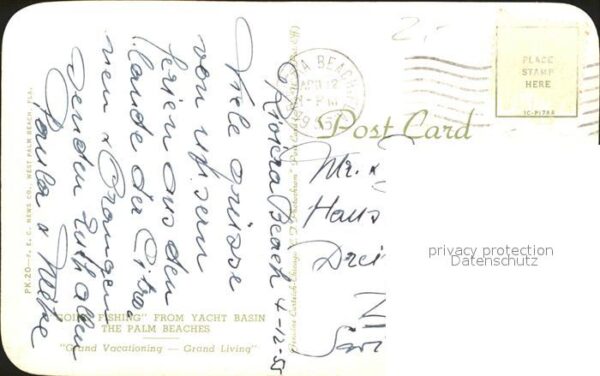 Riviera Beach 4-12-55
Viele Grüsse
von unsern
Ferien aus dem
Lande der Citro-
nen & Orangen
senden Euch allen
Paula &
"GOING FISHING" FROM YACHT BASIN
THE PALM BEACHES
"Grand Vacationing — Grand Living"
PK.20—F. E. C. NEWS CO., WEST PALM BEACH, FLA.
BEACH
APR 12
PM
1955
Post Card
PLACE
STAMP
HERE
1C-P1788
Mr. &
Hans
Drei
privacy protection
Datenschutz